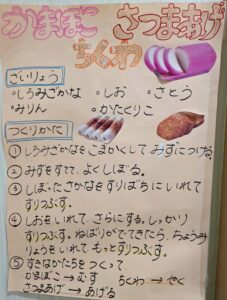 かまぼこ さつまあげ
ちくわ
ざいりょう
・しろみざかな ・しお ・さとう
・みりん ・かたくりこ
つくりかた
① しろみざかなをこまかくして、みずにつける。
② みずをすてて、よくしぼる。
③ しぼったさかなをすりばちにいれて
すりつぶす。
④ しおをいれて、さらにする。しっかり
すりつぶす。ねばりがでてきたら、ちょうみ
りょうをいれて、もっとすりつぶす。
⑤ すきなかたちをつくって
かまぼこ→むす ちくわ→やく
さつまあげ→あげる